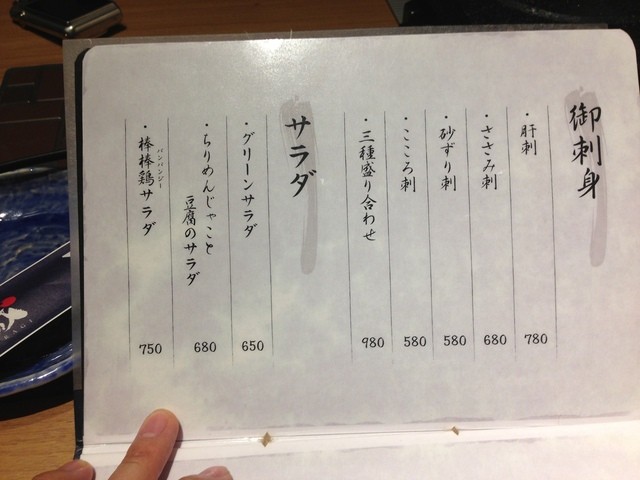 御刺身
・肝刺 780
・ささみ刺 680
・砂ずり刺 580
・こころ刺 580
・三種盛り合わせ 980
サラダ
・グリーンサラダ 650
・ちりめんじゃこと
豆腐のサラダ 680
バンバンジー
・棒棒鶏サラダ 750